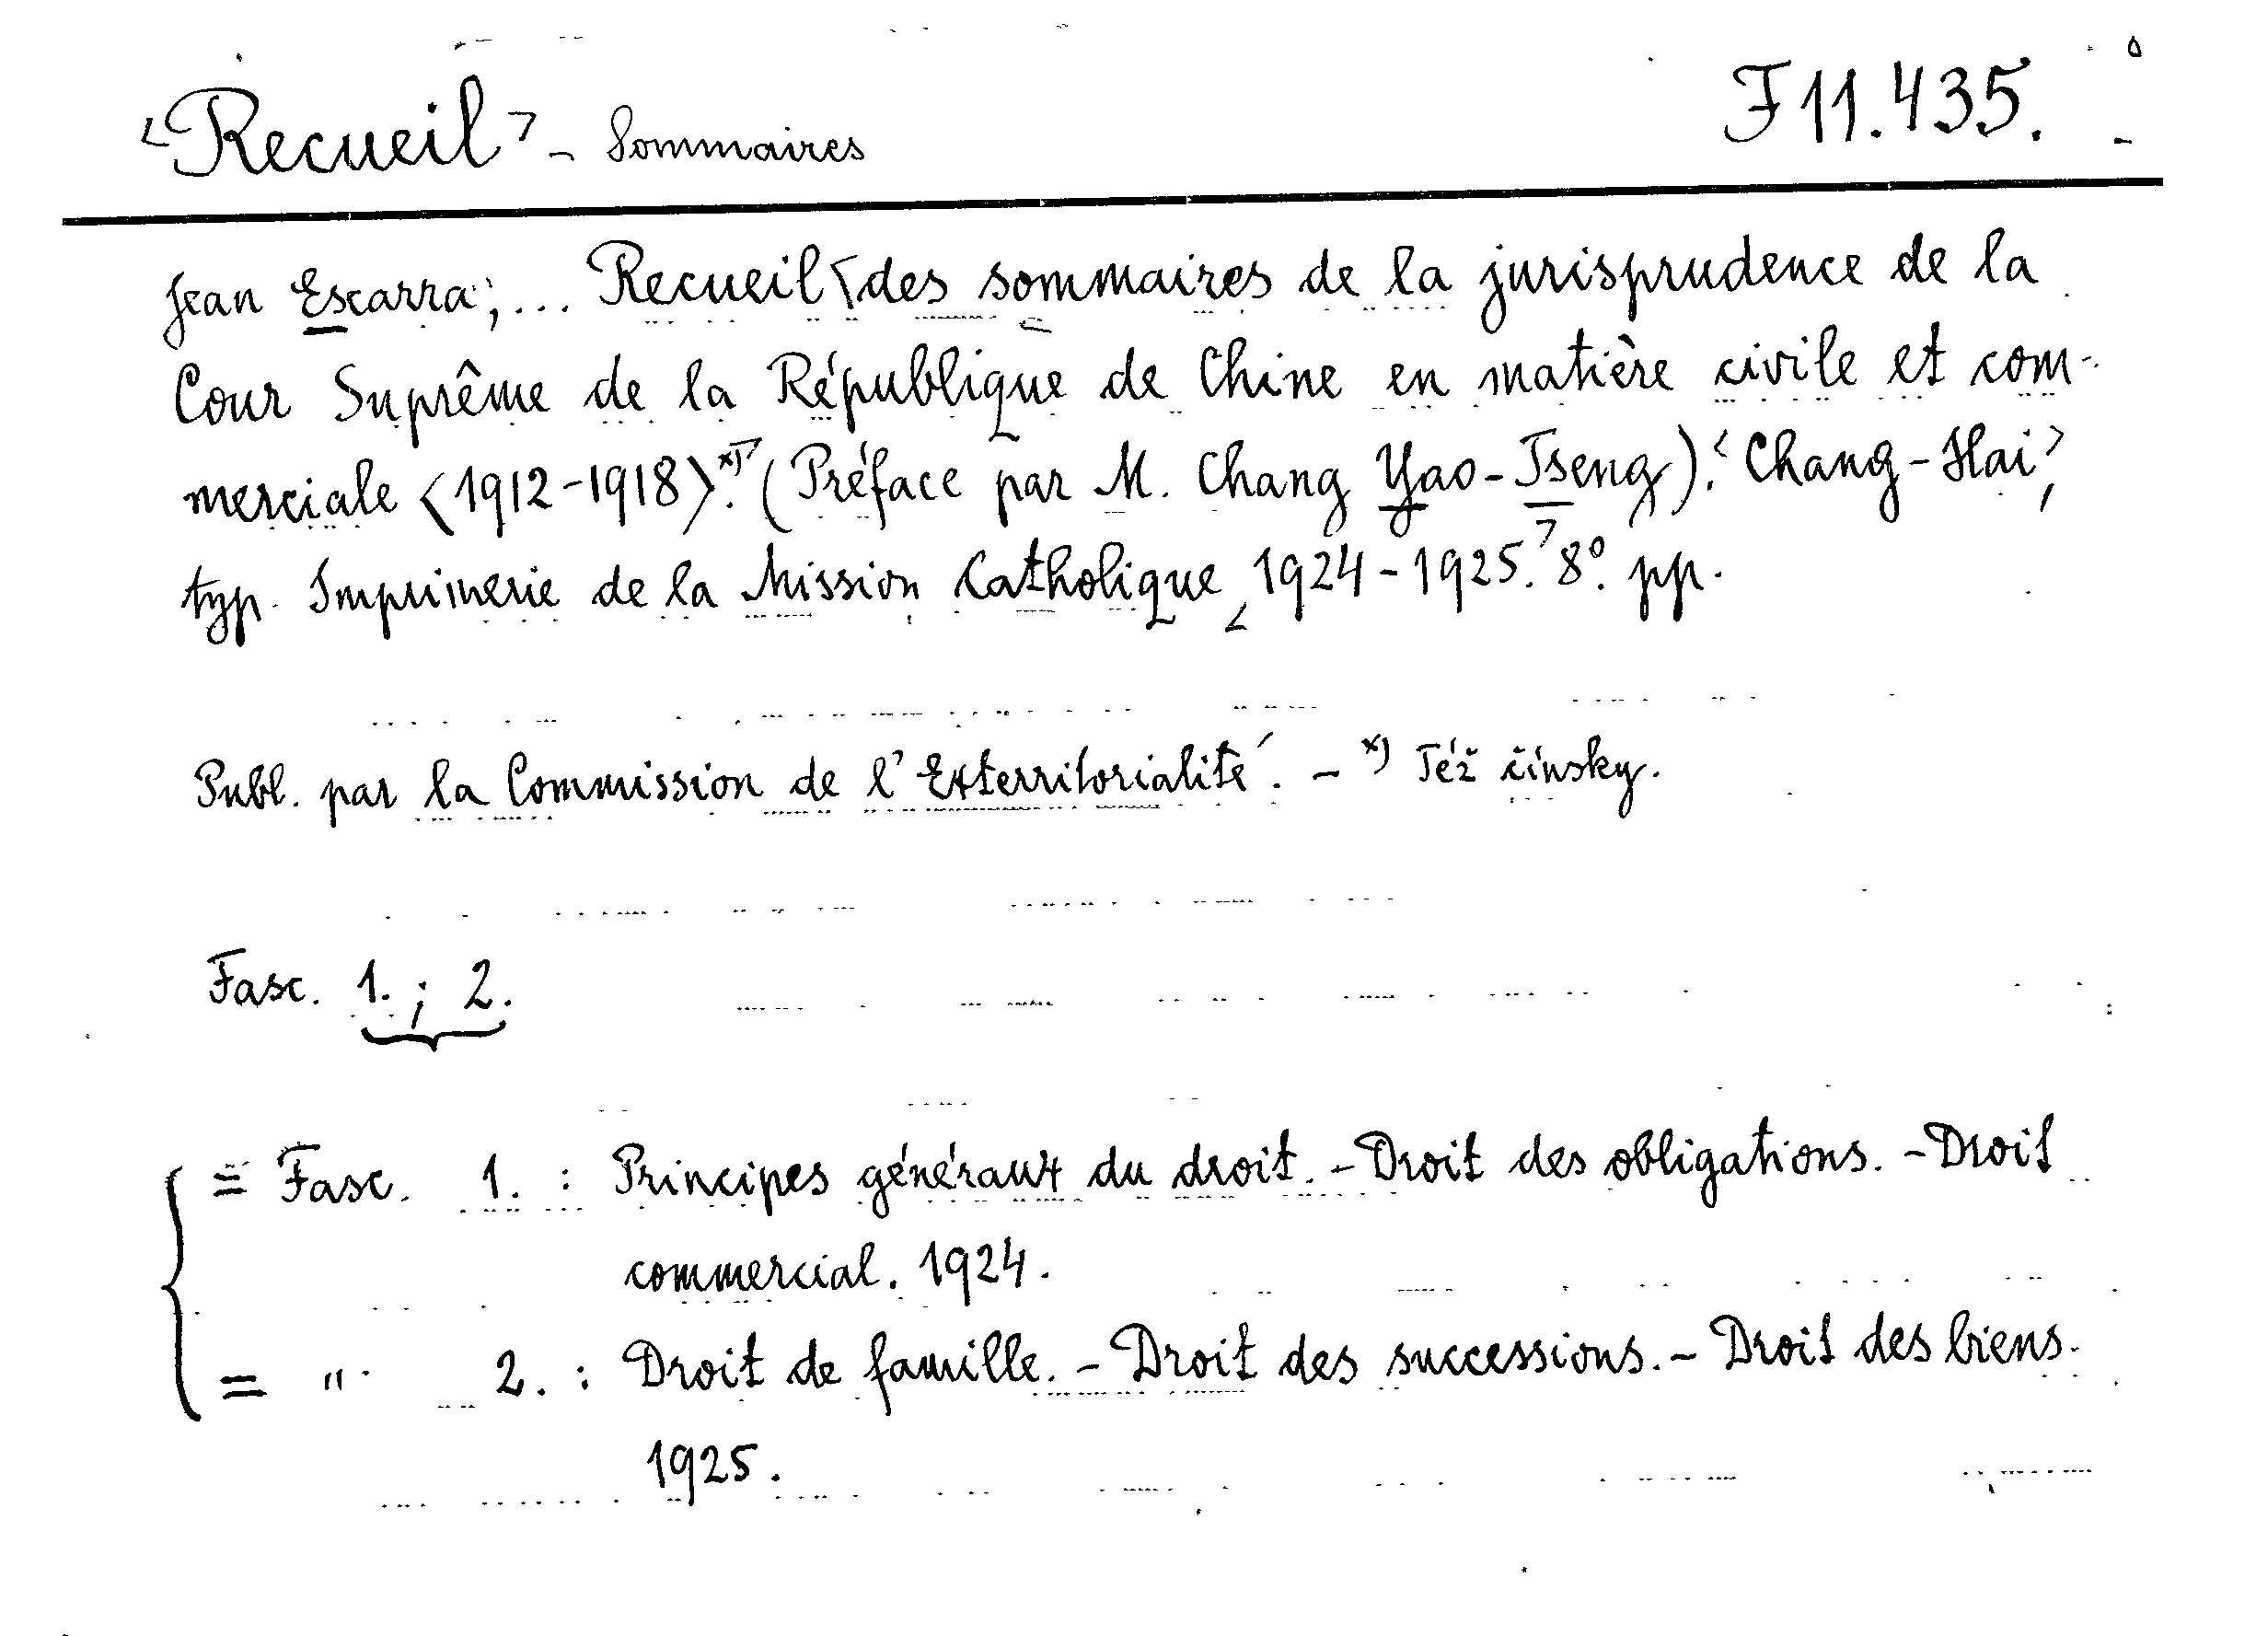 <Recueil> - Sommaires F 11.435.
Jean Escarra; ... Recueil <des sommaires de la jurisprudence de la
Cour Suprême de la République de Chine en matière civile et com-
merciale <1912-1918>.*)> (Préface par M. Chang Yao-Tseng). <Chang-Hai>,
typ. Imprimerie de la Mission Catholique, <1924-1925.> 8°. pp.
Publ. par la Commission de l'Exterritorialité. - *) Též čínsky.
Fasc. 1. ; 2.
= Fasc. 1. : Principes généraux du droit. - Droit des obligations. - Droit
commercial. 1924.
= " 2. : Droit de famille. - Droit des successions. - Droit des biens.
1925.